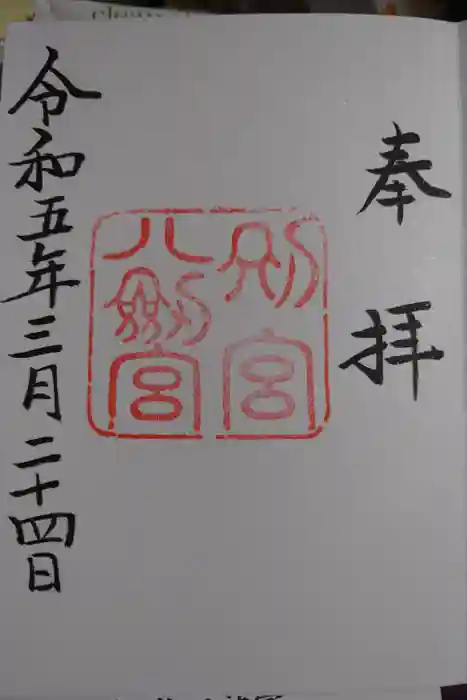 奉拝
別宮
八剱宮
令和五年三月二十四日